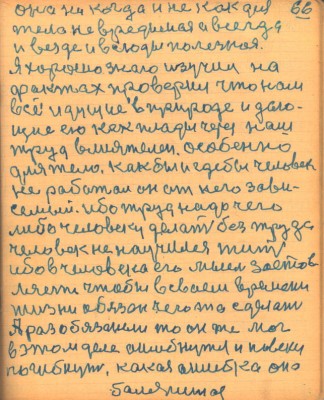 66
она никогда и не как для
тела не вредимая а всегда
и везде и всюди полезная.
Я хорошо знаю изучил на
фактах проверил что нам
всё идущие в природе и даю-
щие его как плади через наш
труд влиятелен. особенно
для тело. Как бы и где бы человек
не работал он от него зави-
семый. ибо труд надо чего
либо человеки делать без труда
человек не научился жить
ибо в человека его мисл застав
ляет чтоби в своем времени
жизни обязан чего то сделать
А раз обязаний то он же мог
в этом деле ошибнутся и навеки
погибнуть, какая ошибка оно